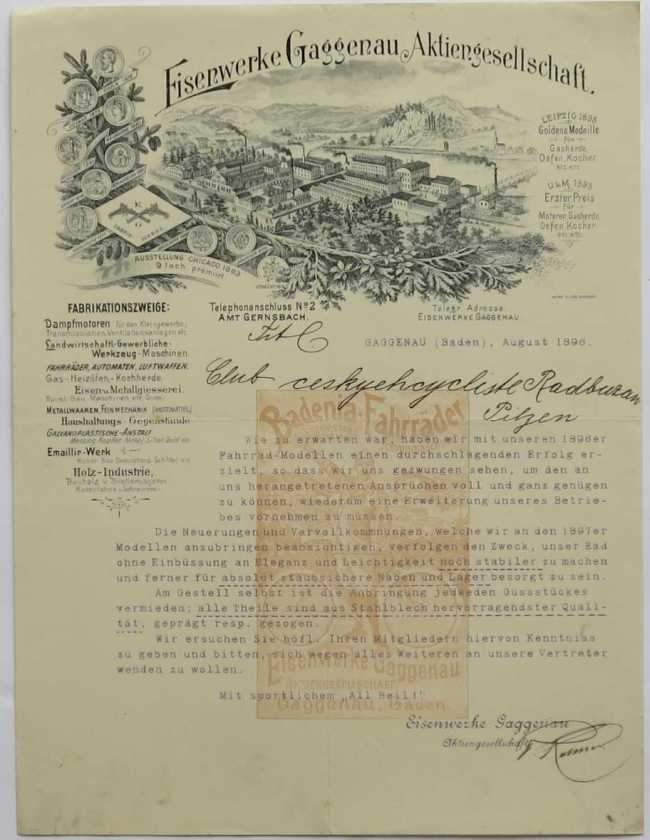 Eisenwerke Gaggenau, Aktiengesellschaft.
LEIPZIG 1893
Goldene Medaille
für
Gasherde
Oefen, Kocher
etc. etc.
ULM 1893
Erster Preis
für
Motoren, Gasherde
Oefen, Kocher
etc. etc.
AUSSTELLUNG CHICAGO 1893
9 fach prämiirt
FABRIKATIONSZWEIGE:
Dampfmotoren für das Kleingewerbe,
Landwirtschaftl.-Gewerbliche-
Werkzeug-Maschinen
FAHRRÄDER, AUTOMATEN, LUFTWAFFEN.
Gas-Heizöfen-Kochherde
Eisen u. Metallgiesserei.
METALLWAAREN, FEINMECHANIK
Haushaltungs-Gegenstände
GALVANOPLASTISCHE-ANSTALT
Emaillir-Werk
Holz-Industrie,
Telephonanschluss No 2
AMT GERNSBACH.
Telegr. Adresse:
EISENWERKE GAGGENAU
Titl
GAGGENAU (Baden), August 1896.
Club českychcyclistě Radbuzan
Pilzen
Badenia-Fahrräder
Wie zu erwarten war, haben wir mit unseren 1896er
Fahrrad-Modellen einen durchschlagenden Erfolg er-
zielt, so dass wir uns gezwungen sehen, um den an
uns herangetretenen Ansprüchen voll und ganz genügen
zu können, wiederum eine Erweiterung unseres Betrie-
bes vornehmen zu müssen.
Die Neuerungen und Vervollkommnungen, welche wir an den 1897er
Modellen anzubringen beabsichtigen, verfolgen den Zweck, unser Rad
ohne Einbüssung an Eleganz und Leichtigkeit noch stabiler zu machen
und ferner für absolut staubsichere Naben und Lager besorgt zu sein.
Am Gestell selbst ist die Anbringung jedweden Gussstückes
vermieden; alle Theile sind aus Stahlblech hervorragendster Quali-
tät, geprägt resp. gezogen.
Wir ersuchen Sie höfl. Ihren Mitgliedern hiervon Kenntniss
zu geben und bitten, sich wegen alles Weiteren an unsere Vertreter
wenden zu wollen.
Eisenwerke Gaggenau
AKTIENGESELLSCHAFT
Gaggenau, Baden.
Mit sportlichem „All Heil!"
Eisenwerke Gaggenau
Aktiengesellschaft